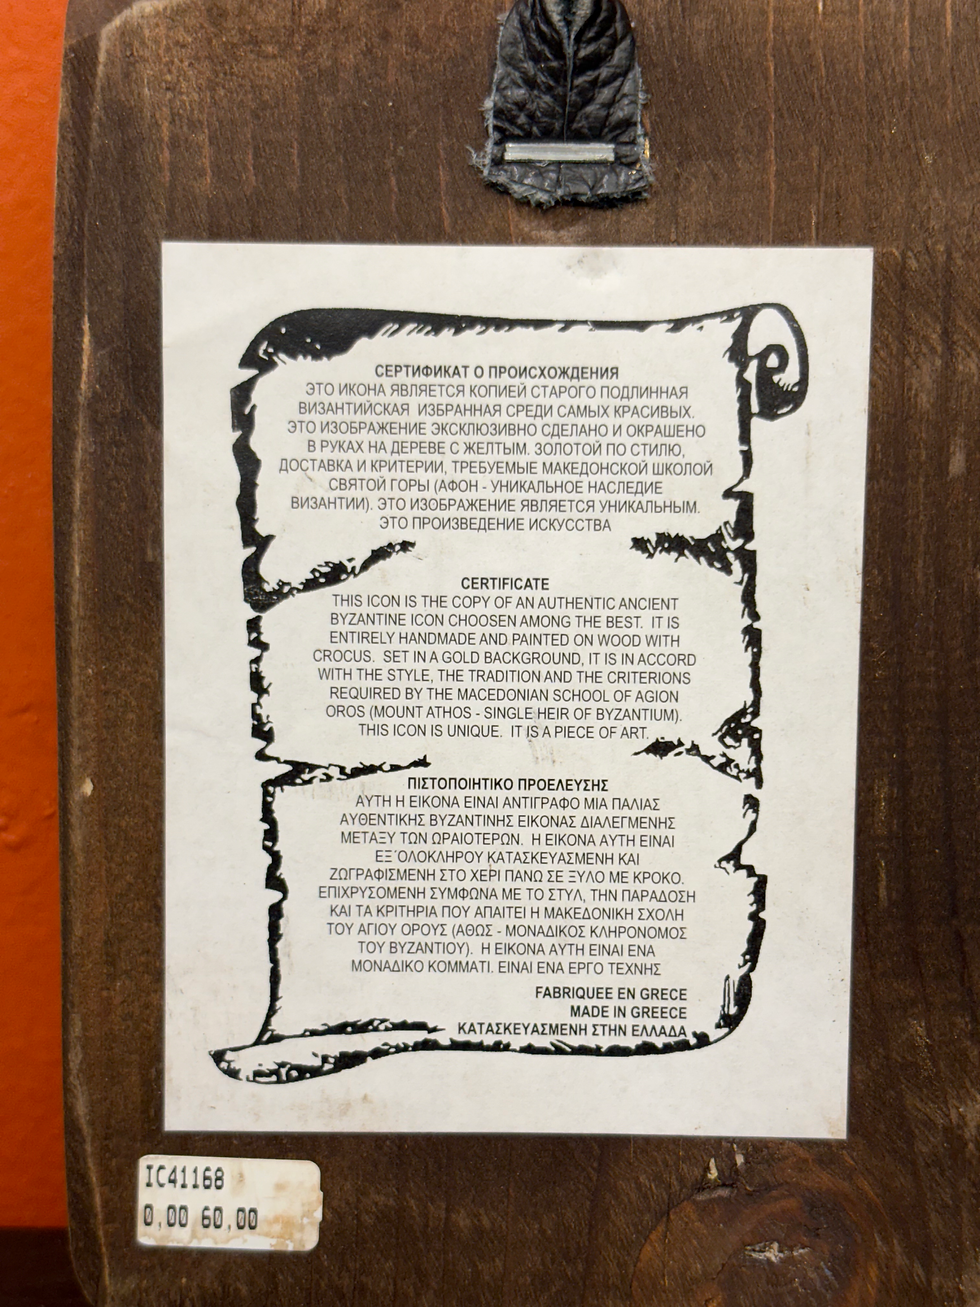 СЕРТИФИКАТ О ПРОИСХОЖДЕНИЯ
ЭТО ИКОНА ЯВЛЯЕТСЯ КОПИЕЙ СТАРОГО ПОДЛИННАЯ
ВИЗАНТИЙСКАЯ ИЗБРАННАЯ СРЕДИ САМЫХ КРАСИВЫХ.
ЭТО ИЗОБРАЖЕНИЕ ЭКСКЛЮЗИВНО СДЕЛАНО И ОКРАШЕНО
В РУКАХ НА ДЕРЕВЕ С ЖЕЛТЫМ. ЗОЛОТОЙ ПО СТИЛЮ,
ДОСТАВКА И КРИТЕРИИ, ТРЕБУЕМЫЕ МАКЕДОНСКОЙ ШКОЛОЙ
СВЯТОЙ ГОРЫ (АФОН - УНИКАЛЬНОЕ НАСЛЕДИЕ
ВИЗАНТИИ). ЭТО ИЗОБРАЖЕНИЕ ЯВЛЯЕТСЯ УНИКАЛЬНЫМ.
ЭТО ПРОИЗВЕДЕНИЕ ИСКУССТВА
CERTIFICATE
THIS ICON IS THE COPY OF AN AUTHENTIC ANCIENT
BYZANTINE ICON CHOOSEN AMONG THE BEST. IT IS
ENTIRELY HANDMADE AND PAINTED ON WOOD WITH
CROCUS. SET IN A GOLD BACKGROUND, IT IS IN ACCORD
WITH THE STYLE, THE TRADITION AND THE CRITERIONS
REQUIRED BY THE MACEDONIAN SCHOOL OF AGION
OROS (MOUNT ATHOS - SINGLE HEIR OF BYZANTIUM).
THIS ICON IS UNIQUE. IT IS A PIECE OF ART.
ΠΙΣΤΟΠΟΙΗΤΙΚΟ ΠΡΟΕΛΕΥΣΗΣ
ΑΥΤΗ Η ΕΙΚΟΝΑ ΕΙΝΑΙ ΑΝΤΙΓΡΑΦΟ ΜΙΑ ΠΑΛΙΑΣ
ΑΥΘΕΝΤΙΚΗΣ ΒΥΖΑΝΤΙΝΗΣ ΕΙΚΟΝΑΣ ΔΙΑΛΕΓΜΕΝΗΣ
ΜΕΤΑΞΥ ΤΩΝ ΩΡΑΙΟΤΕΡΩΝ. Η ΕΙΚΟΝΑ ΑΥΤΗ ΕΙΝΑΙ
ΕΞ΄ΟΛΟΚΛΗΡΟΥ ΚΑΤΑΣΚΕΥΑΣΜΕΝΗ ΚΑΙ
ΖΩΓΡΑΦΙΣΜΕΝΗ ΣΤΟ ΧΕΡΙ ΠΑΝΩ ΣΕ ΞΥΛΟ ΜΕ ΚΡΟΚΟ.
ΕΠΙΧΡΥΣΟΜΕΝΗ ΣΥΜΦΩΝΑ ΜΕ ΤΟ ΣΤΥΛ, ΤΗΝ ΠΑΡΑΔΟΣΗ
ΚΑΙ ΤΑ ΚΡΙΤΗΡΙΑ ΠΟΥ ΑΠΑΙΤΕΙ Η ΜΑΚΕΔΟΝΙΚΗ ΣΧΟΛΗ
ΤΟΥ ΑΓΙΟΥ ΟΡΟΥΣ (ΑΘΩΣ - ΜΟΝΑΔΙΚΟΣ ΚΛΗΡΟΝΟΜΟΣ
ΤΟΥ ΒΥΖΑΝΤΙΟΥ). Η ΕΙΚΟΝΑ ΑΥΤΗ ΕΙΝΑΙ ΕΝΑ
ΜΟΝΑΔΙΚΟ ΚΟΜΜΑΤΙ. ΕΙΝΑΙ ΕΝΑ ΕΡΓΟ ΤΕΧΝΗΣ
FABRIQUEE EN GRECE
MADE IN GREECE
ΚΑΤΑΣΚΕΥΑΣΜΕΝΗ ΣΤΗΝ ΕΛΛΑΔΑ
IC41168
0,00 60,00